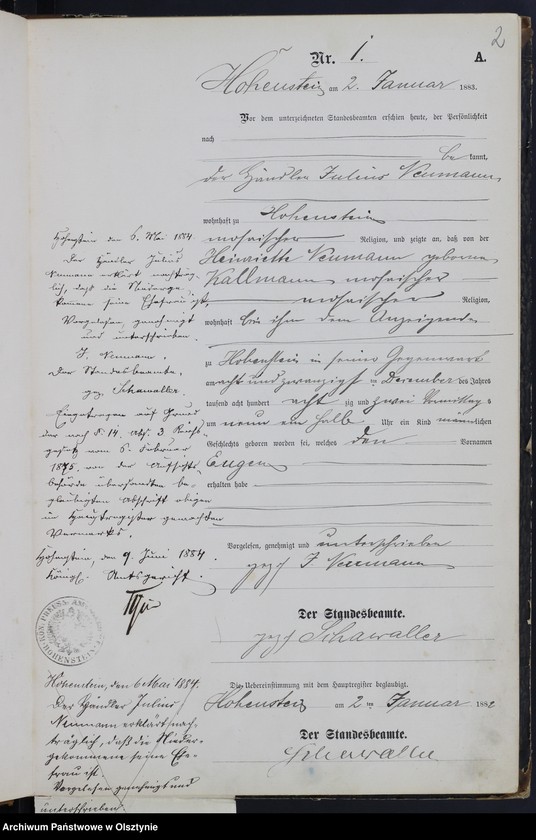 2
Nr. 1. A.
Hohenstein am 2. Januar 1883.
Vor dem unterzeichneten Standesbeamten erschien heute, der Persönlichkeit
nach
be kannt,
der Händler Julius Neumann,
wohnhaft zu Hohenstein
mosaischer Religion, und zeigte an, daß von der
Henriette Neumann geborene
Kallmann mosaischer
mosaischer Religion,
wohnhaft bei ihm dem Anzeigende
zu Hohenstein in seiner Gegenwart
am acht und zwanzigst en December des Jahres
tausend acht hundert acht zig und zwei Vormittag s
um neun ein halb Uhr ein Kind männlichen
Geschlechts geboren worden sei, welches den Vornamen
Eugen
erhalten habe
Vorgelesen, genehmigt und unterschrieben
gez J Neumann
Der Standesbeamte.
gez Schawaller
Die Uebereinstimmung mit dem Hauptregister beglaubigt.
Hohenstein am 2 ten Januar 188
Der Standesbeamte.
Schawaller
Hohenstein den 6. Mai 1884.
Der Händler Julius
Neumann erklärt nachträg-
lich, daß die Niederge-
kommene seine Ehefrau ist.
Vorgelesen, genehmigt
und unterschrieben.
J. Neumann.
Der Standesbeamte.
gez. Schawaller.
Eingetragen auf Grund
des nach §. 14. Abs. 3. Reichs-
gesetz vom 6. Februar
1875. von der Aufsichts-
behörde übersandten be-
glaubigten Abschrift obigen
im Hauptregister gemachten
Vermerks.
Hohenstein, den 9. Juni 1884.
Königl. Amtsgericht.
HOHENSTEIN
Hohenstein, den 6 Mai 1884.
Der Händler Julius
Neumann erklärt nach-
träglich, daß die Nieder-
gekommene seine Ehe-
frau ist.
Vorgelesen genehmigt und
unterschrieben.
Archiwum Państwowe w Olsztynie